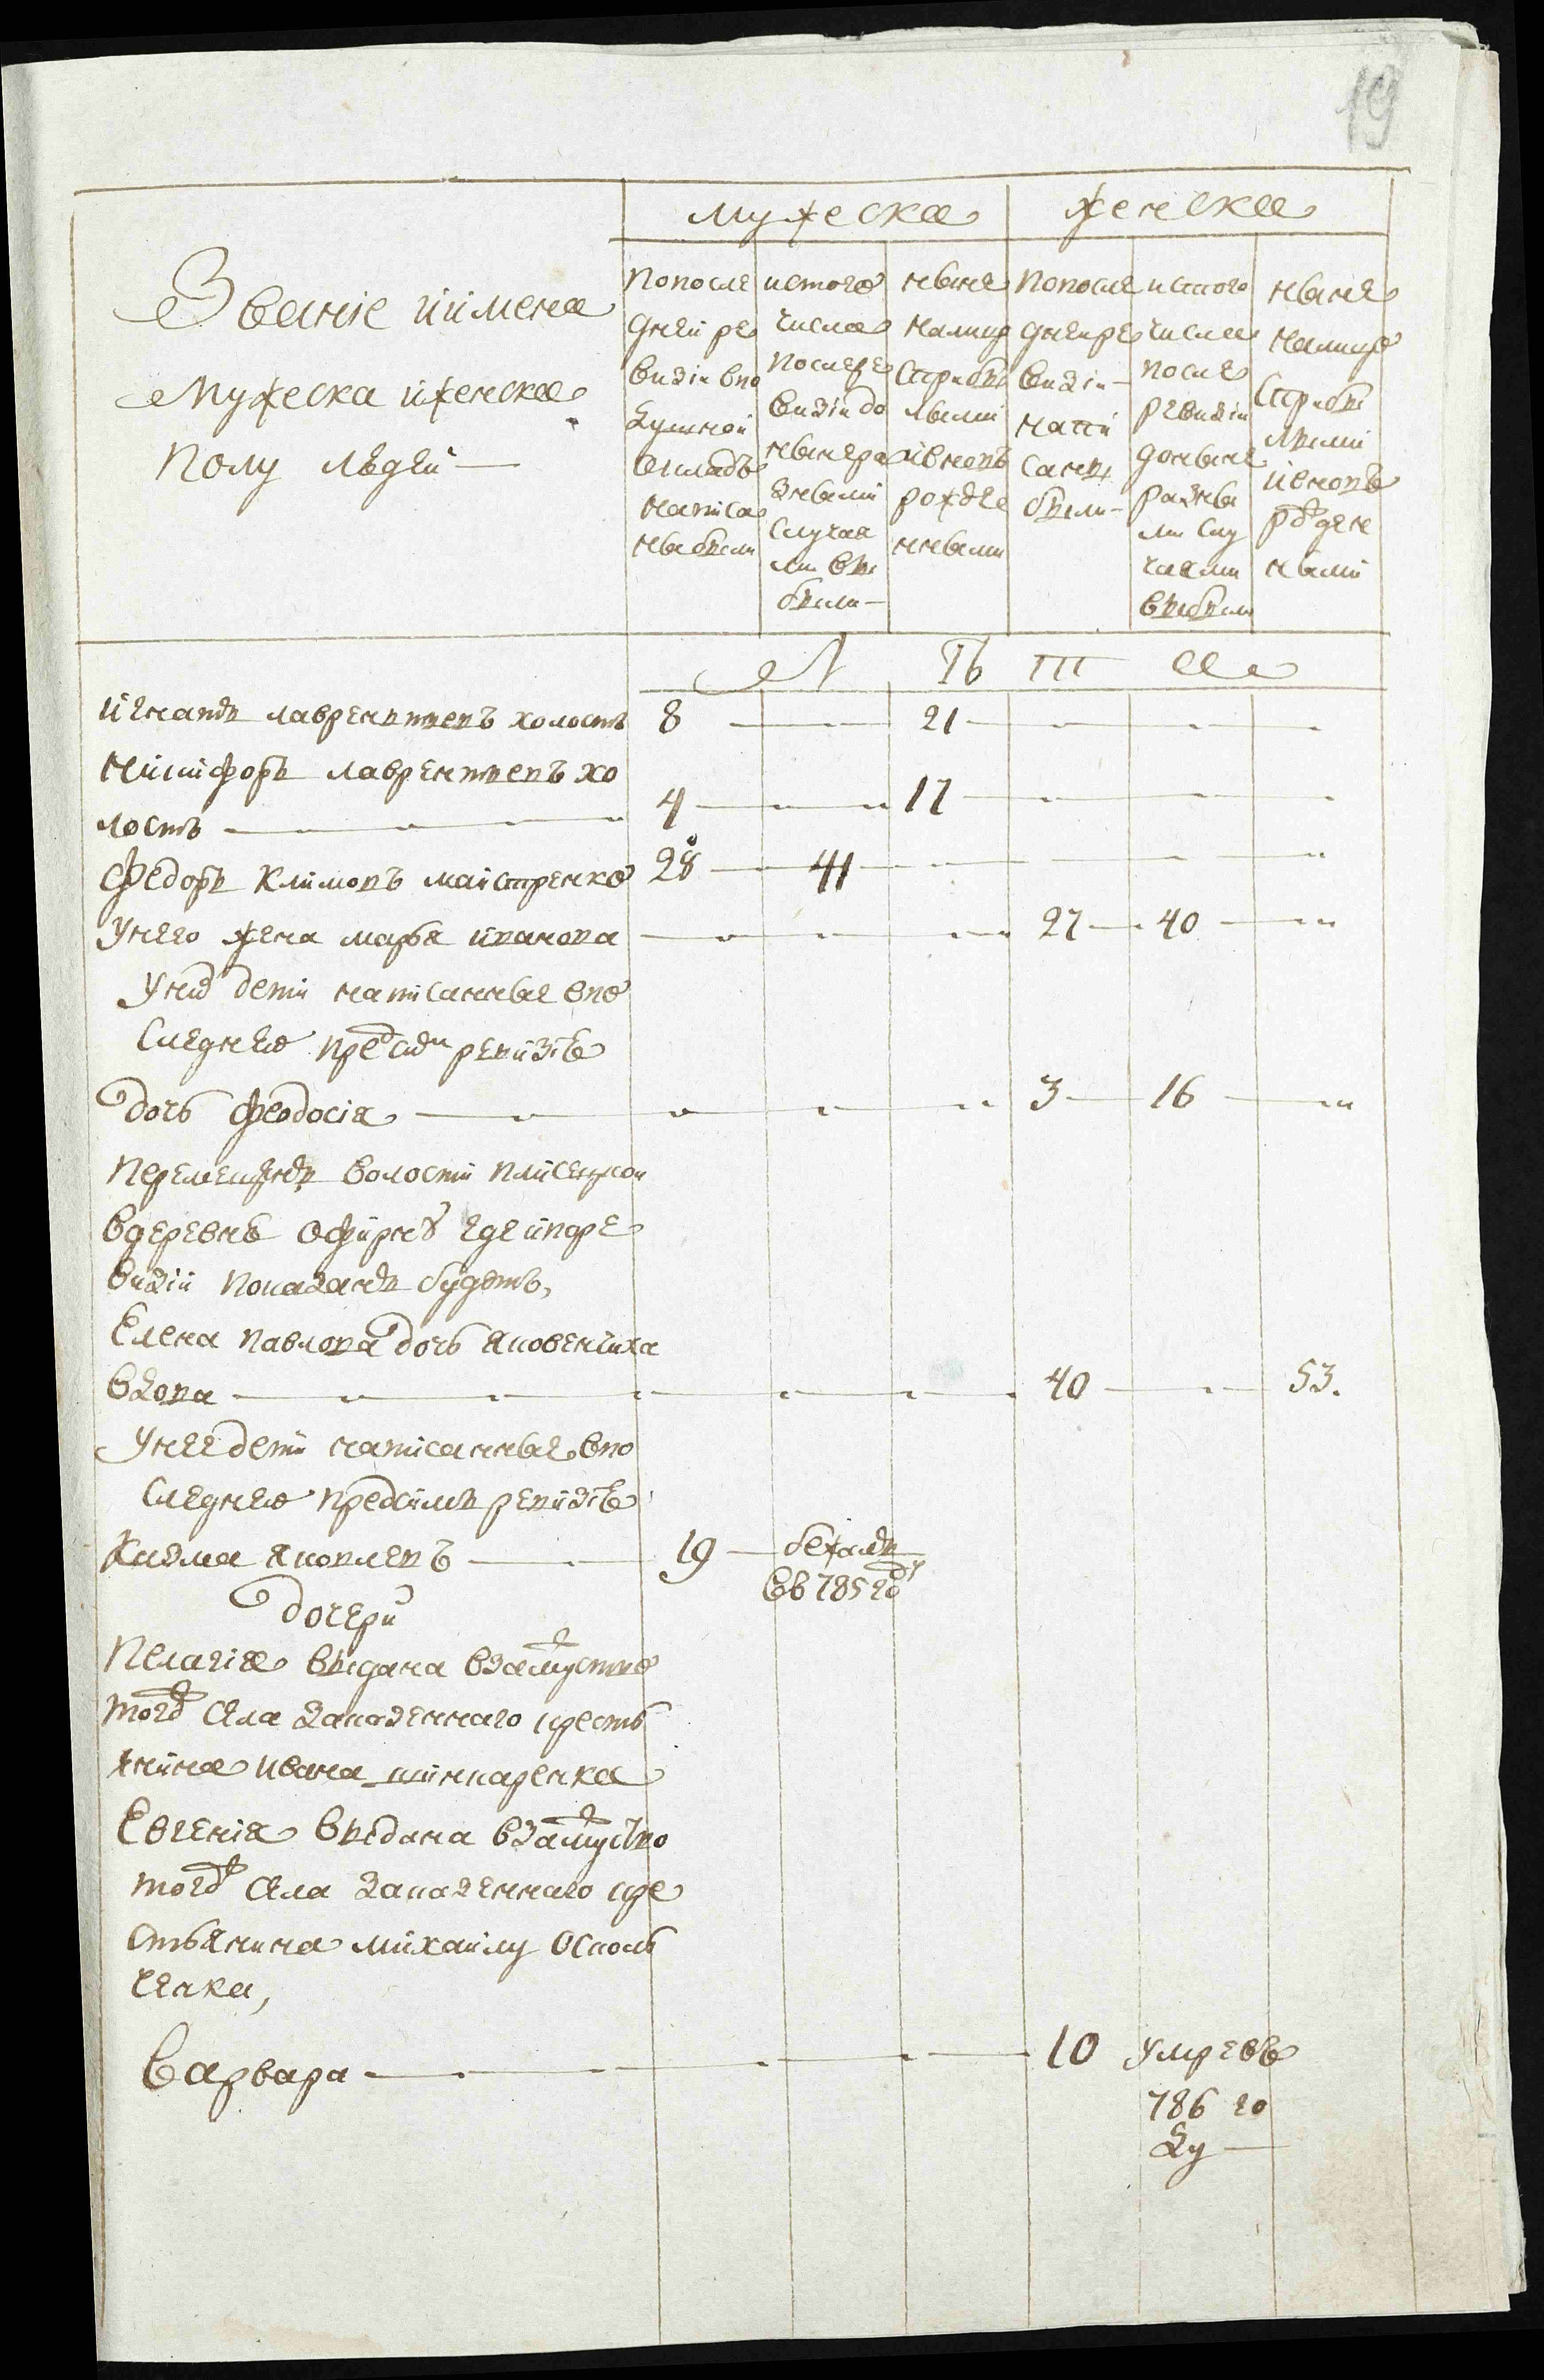 19
Мужеска
Женска
Званіе иимена
Мужеска иженска
Полу людеи
Попосле
днеи ре
визіи впо
душнои
окладъ
написа
ны были
истого
числа
После ре
визіи до
ныне ра
зными
случая
ми вы
были
ныне
налицо
Сприбы
лыми
ивновь
рожде
нными
Попосле
днеи ре
визіи
напи
саны
были
истого
числа
после
ревизіи
доныне
разны
ми слу
чаями
выбыли
ныне
налицо
Сприбы
лыми
ивновь
рожден
ными
Л Ѣ Т А
Игнатъ лаврентьевъ холостъ 8 21
Никифоръ лаврентьевъ хо
лостъ 4 17
Федоръ Климовъ маистренко 28 41
Унего жена марья иванова 27 40
Уних дети написанные впо
следнею пред сим ревизіе
дочь феодосія 3 16
Перемещенъ волости
вдеревнѣ Офирну где ипоре
визіи показанъ будетъ,
Елена павлова дочь яковенчиха
вдова 40 53.
Унее дети написанные впо
следнею предсимъ ревизіе
Кизма яковлевъ 19 бежалъ
въ 785 году
дочери
Пелагія выдана взамуство
тогож села казенного кресть
янина ивана шинкаренка
Евгенія выдана взамуство
тогож села казенного кре
стьянина михаилу Осколь
ченка,
Варвара 10 умре въ
786 го
ду